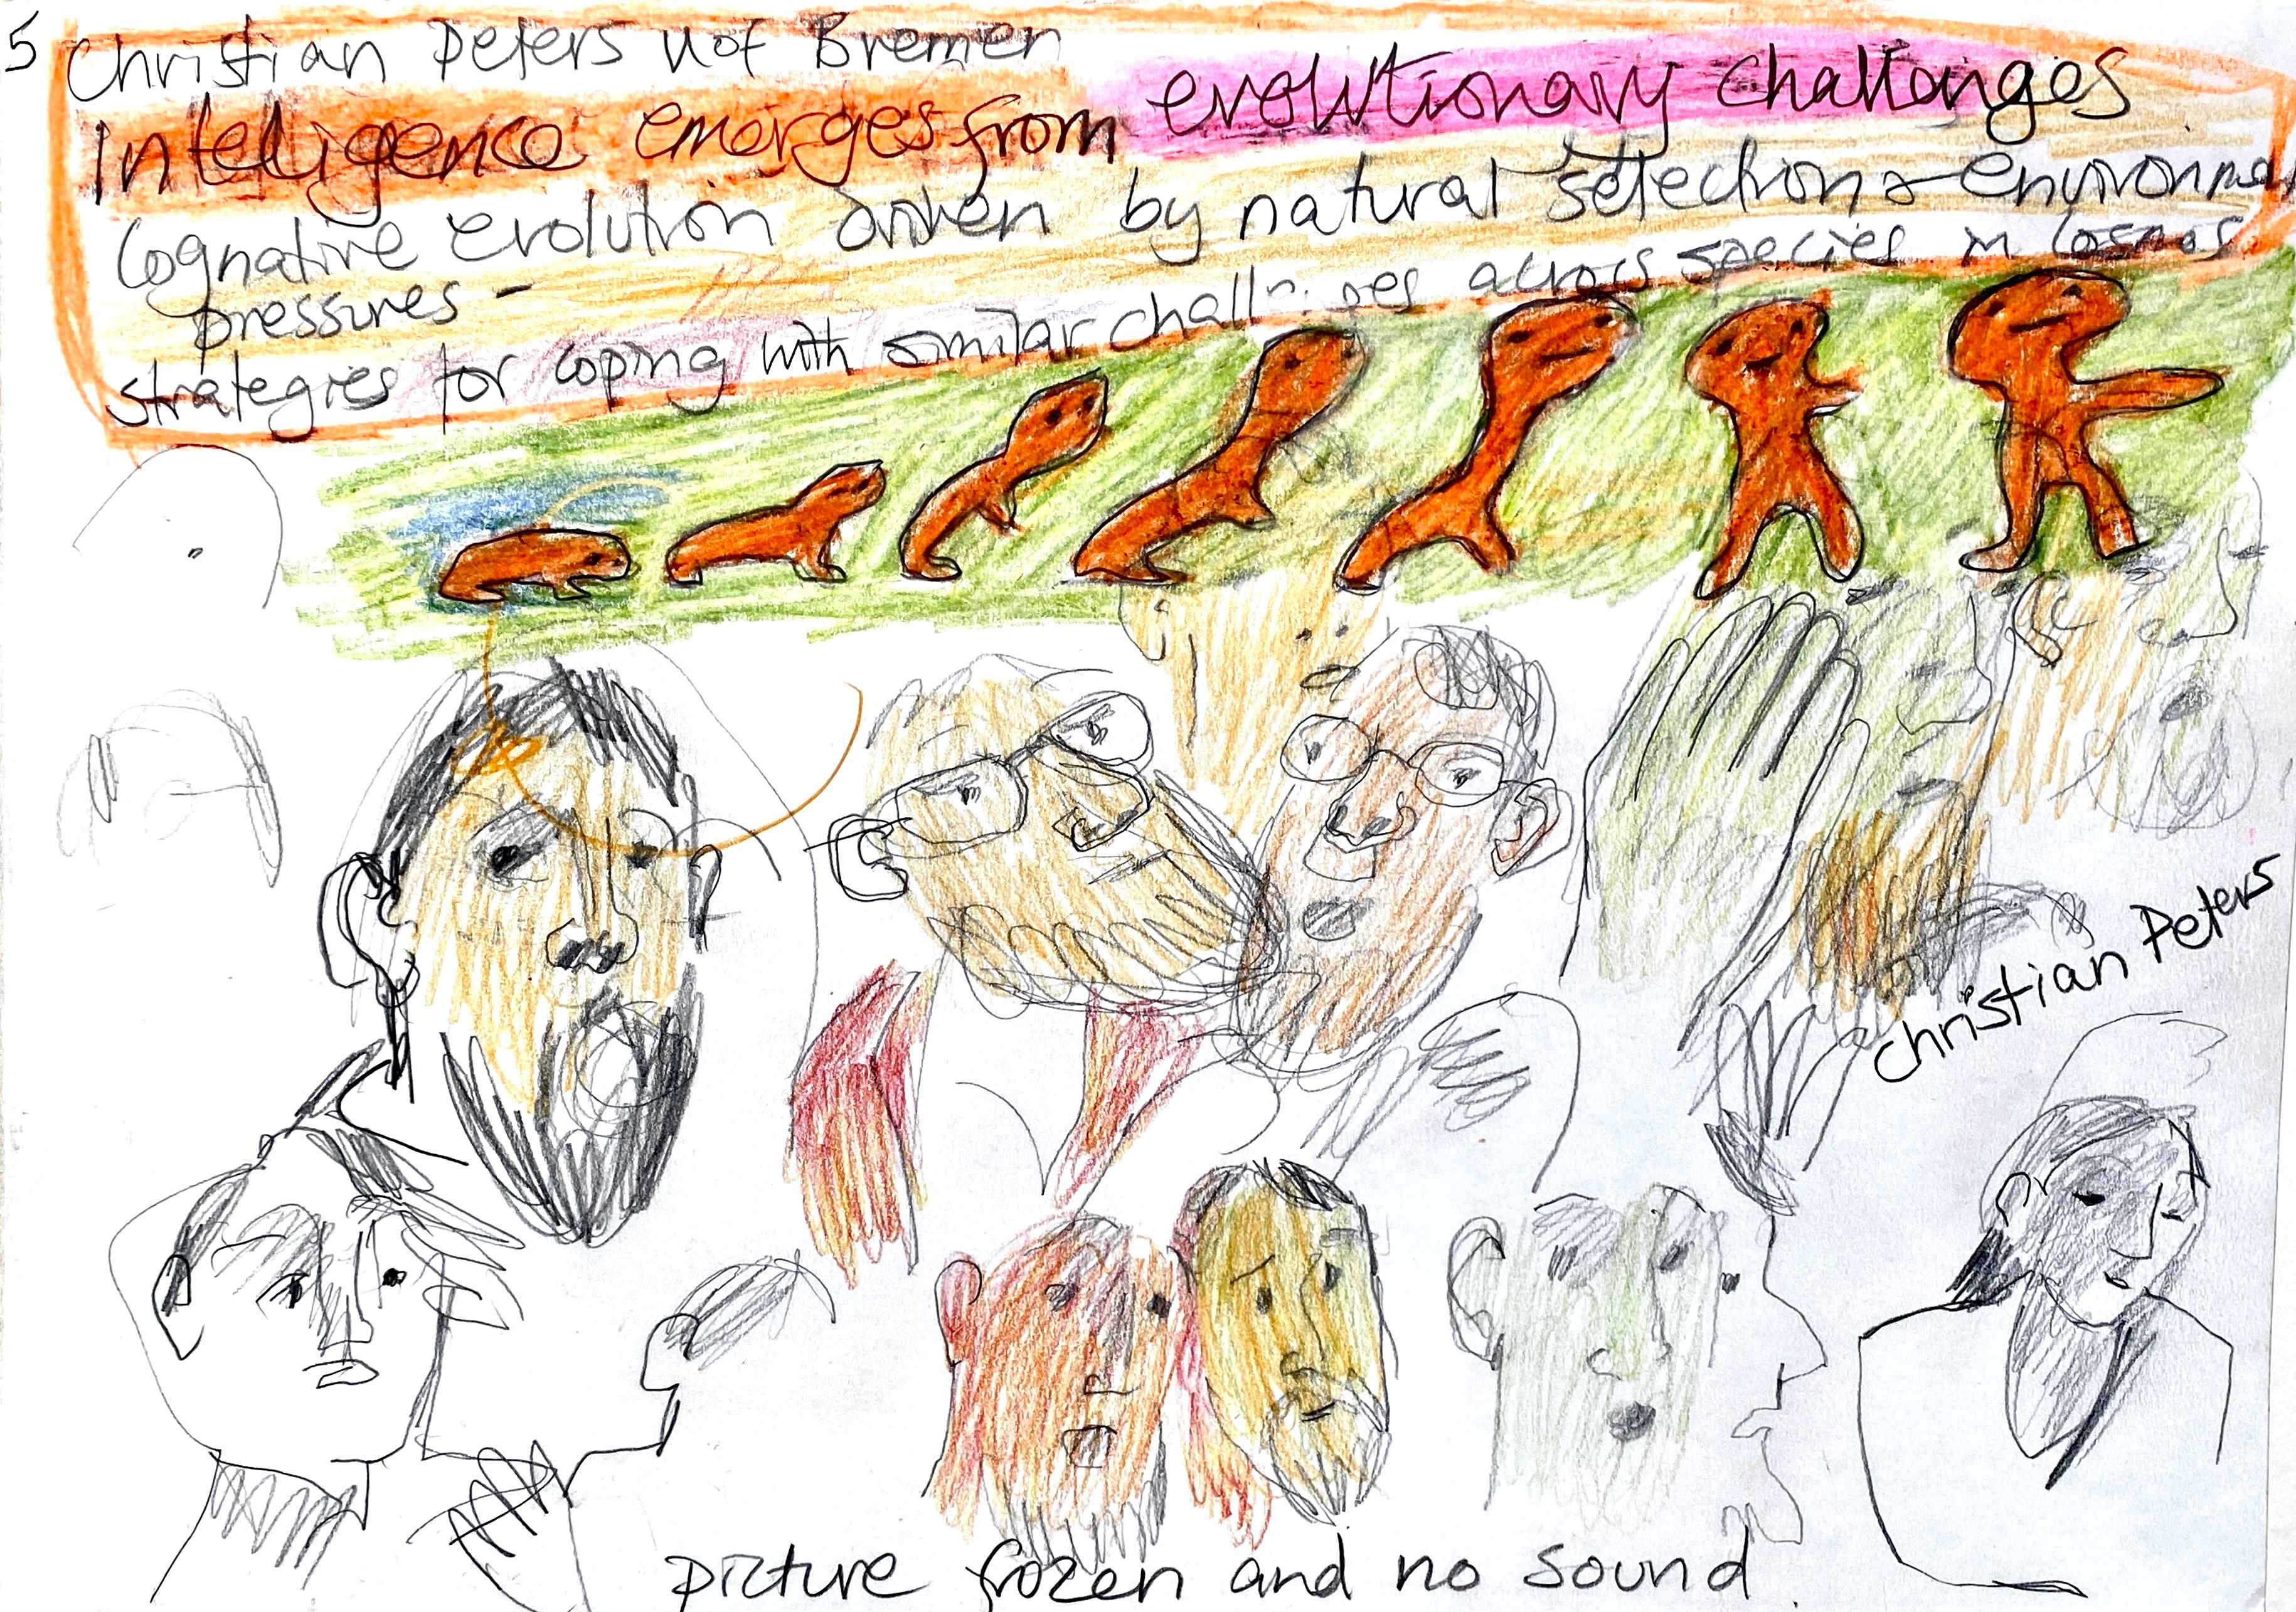 5
Christian Peters U of Bremen
Intelligence emerges from evolutionary challanges
Cognative evolution driven by natural selection & environmen
pressures -
strategies for coping with similar challenges across species in Cosmos
Christian Peters
picture frozen and no sound